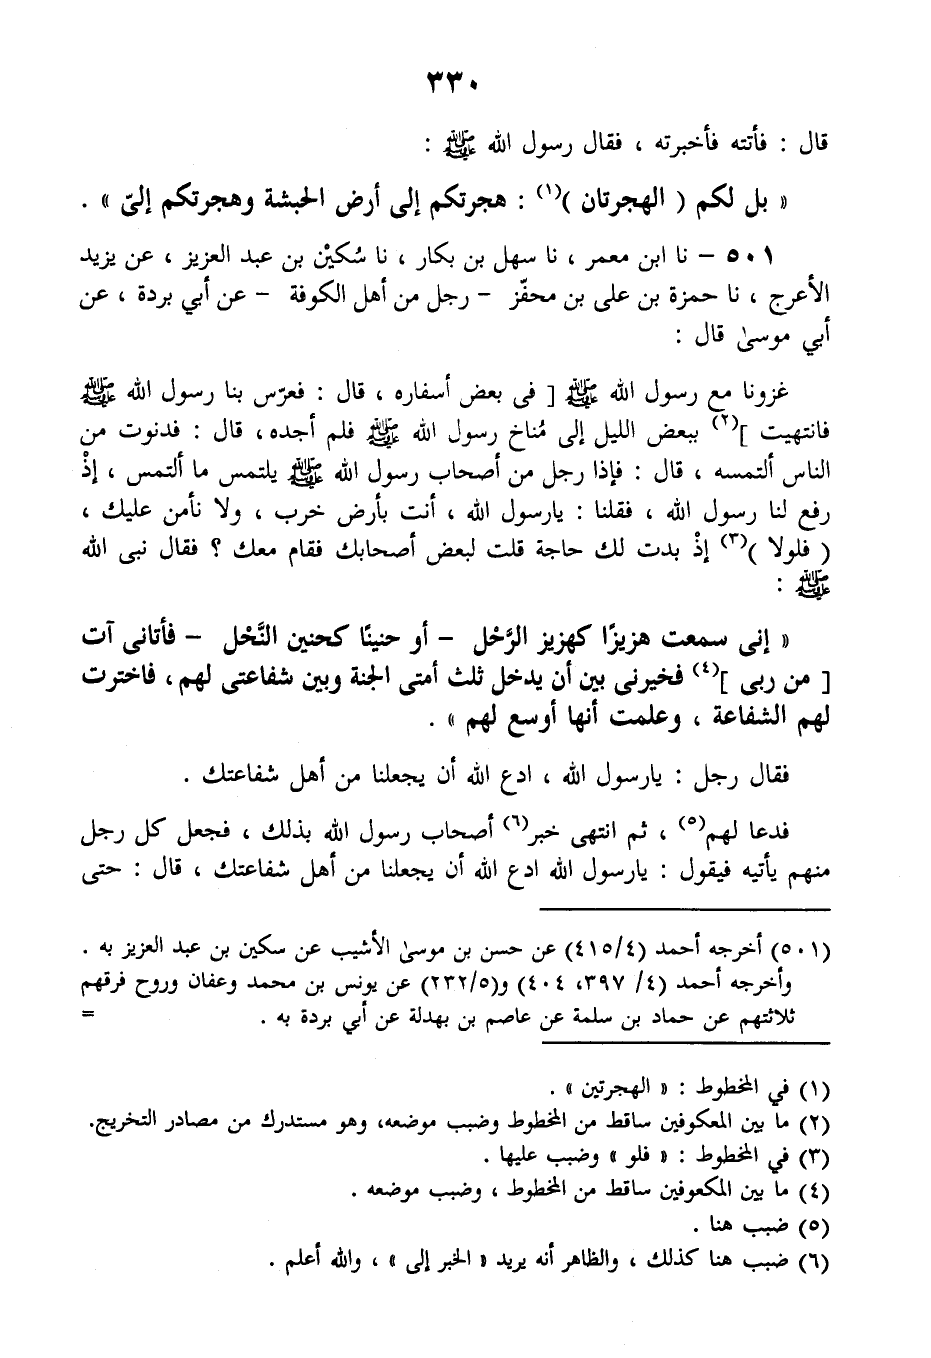 ٣٣٠
قال : فأتته فأخبرته ، فقال رسول الله ﷺ :
« بل لكم ( الهجرتان )(١) : هجرتكم إلى أرض الحبشة وهجرتكم إليّ » .
٥٠١ – نا ابن معمر ، نا سهل بن بكار ، نا سُكيْن بن عبد العزيز ، عن يزيد
الأعرج ، نا حمزة بن على بن محفّز – رجل من أهل الكوفة – عن أبي بردة ، عن
أبي موسىٰ قال :
غزونا مع رسول الله ﷺ [ فى بعض أسفاره ، قال : فعرّس بنا رسول الله ﷺ
فانتهيت ](٢) ببعض الليل إلى مُناخ رسول الله ﷺ فلم أجده، قال : فدنوت من
الناس ألتمسه ، قال : فإذا رجل من أصحاب رسول الله ﷺ يلتمس ما ألتمس ، إذْ
رفع لنا رسول الله ، فقلنا : يارسول الله ، أنت بأرض خرب ، ولا نأمن عليك ،
( فلولا )(٣) إذْ بدت لك حاجة قلت لبعض أصحابك فقام معك ؟ فقال نبى الله
ﷺ :
« إنى سمعت هزيزًا كهزيز الرَّحْل – أو حنينًا كحنين النَّحْل – فأتانى آت
[ من ربى ](٤) فخيرنى بين أن يدخل ثلث أمتى الجنة وبين شفاعتى لهم ، فاخترت
لهم الشفاعة ، وعلمت أنها أوسع لهم » .
فقال رجل : يارسول الله ، ادع الله أن يجعلنا من أهل شفاعتك .
فدعا لهم(٥) ، ثم انتهى خبر(٦) أصحاب رسول الله بذلك ، فجعل كل رجل
منهم يأتيه فيقول : يارسول الله ادع الله أن يجعلنا من أهل شفاعتك ، قال : حتى
(٥٠١) أخرجه أحمد (٤/٤١٥) عن حسن بن موسىٰ الأشيب عن سكين بن عبد العزيز به .
وأخرجه أحمد (٤/ ٣٩٧، ٤٠٤) و(٥/٢٣٢) عن يونس بن محمد وعفان وروح فرقهم
ثلاثتهم عن حماد بن سلمة عن عاصم بن بهدلة عن أبي بردة به . =
(١) في المخطوط : « الهجرتين » .
(٢) ما بين المعكوفين ساقط من المخطوط وضبب موضعه، وهو مستدرك من مصادر التخريج.
(٣) في المخطوط : « فلو » وضبب عليها .
(٤) ما بين المكعوفين ساقط من المخطوط ، وضبب موضعه .
(٥) ضبب هنا .
(٦) ضبب هنا كذلك ، والظاهر أنه يريد « الخبر إلى » ، والله أعلم .